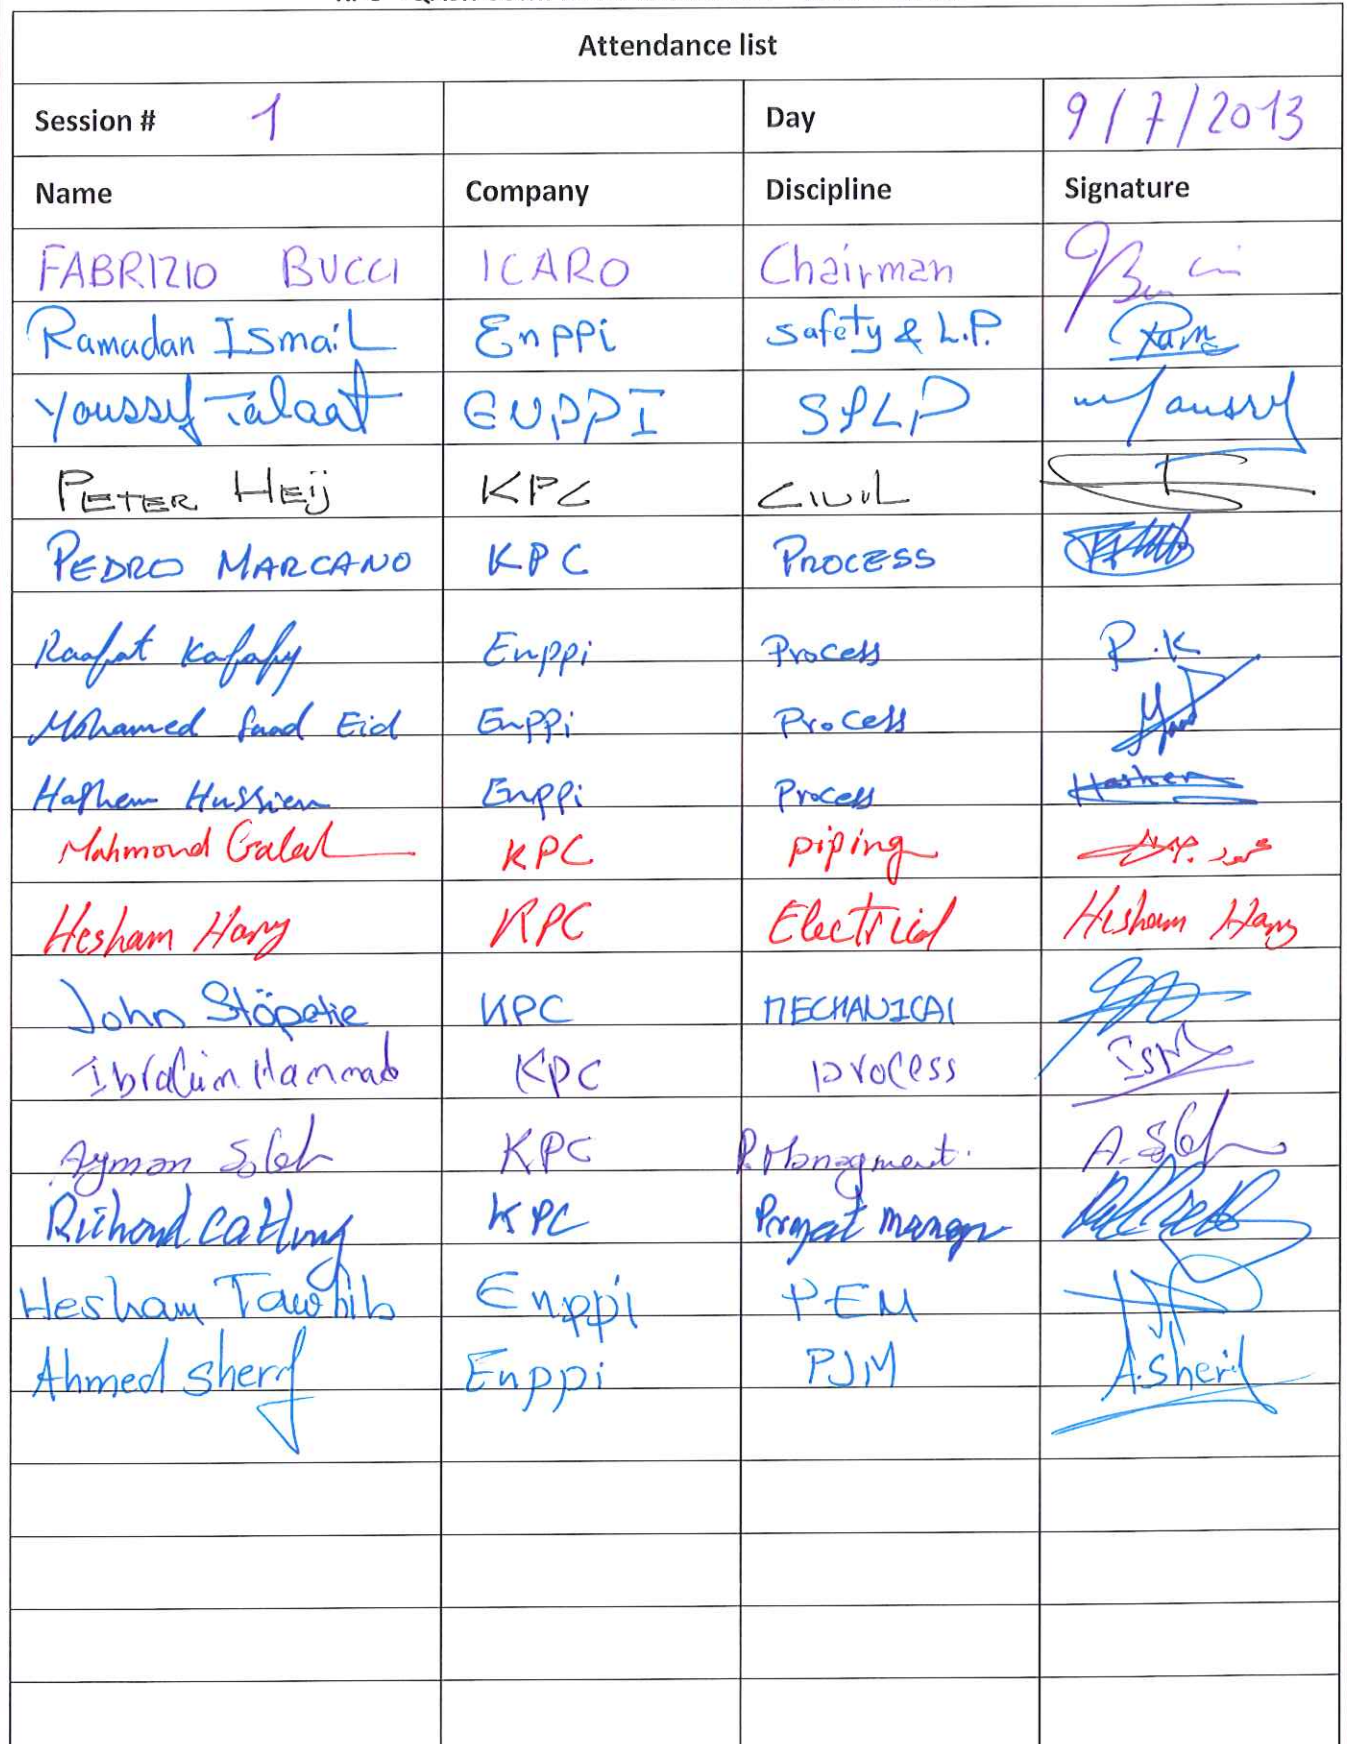 Attendance list
Session # 1 Day 9/7/2013
Name Company Discipline Signature
FABRIZIO BUCCI ICARO Chairman
Ramadan Ismail Enppi Safety & L.P.
Youssef Talaat ENPPI S&LP Youssef
PETER HEIJ KPC CIVIL
PEDRO MARCANO KPC PROCESS
Raafat Kafafy Enppi Process R.K
Mohamed Saad Eid Enppi Process
Hashem Hussien Enppi Process Hashem
Mahmoud Galal KPC piping
Hesham Hany KPC Electrical Hesham Hany
John KPC MECHANICAL
Ibrahim Hammad KPC process
Ayman Saleh KPC P. Managment. A. Saleh
Richard Catling KPC Project manager
Hesham Tawhib Enppi PEM
Ahmed Sherif Enppi PJM A.Sherif